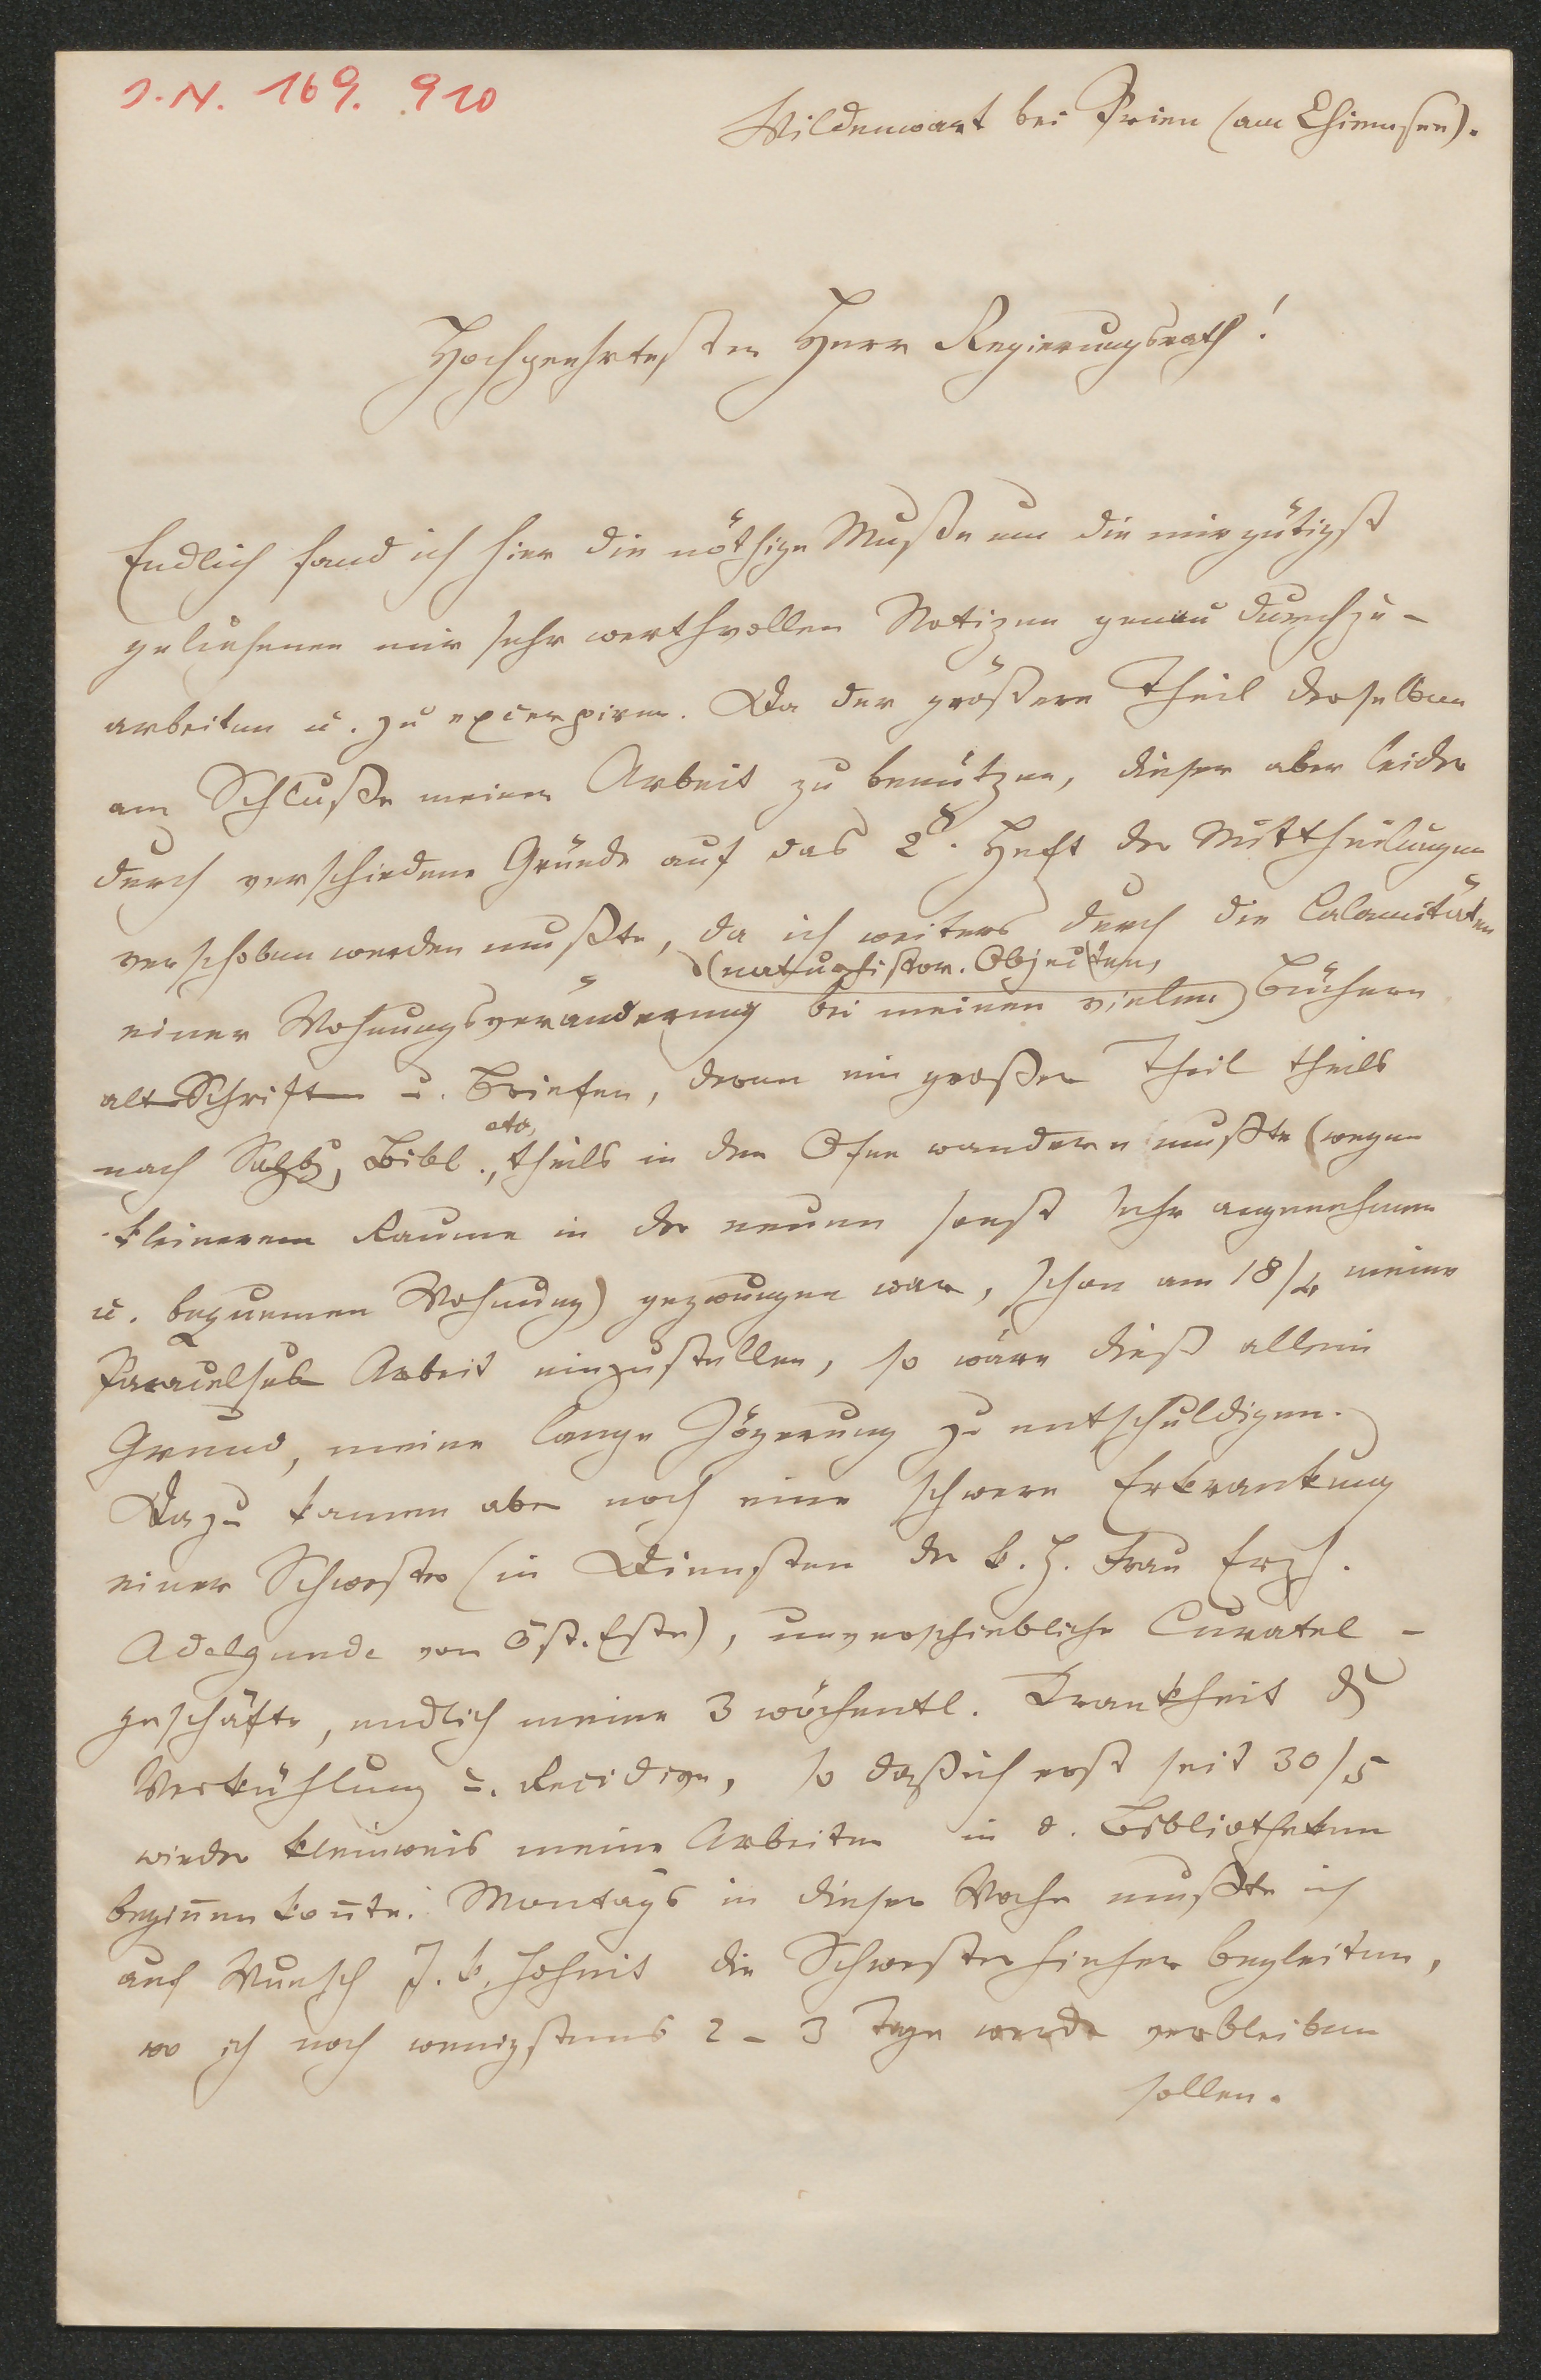 I. N. 169.910
Wildenwart bei Prien (am Chiemsee).
Hochgeehrtester Herr Regierungsrath!
Endlich fand ich hier die nöthige Muße um die mir gütigst
geliehenen mir sehr werthvollen Notizen genau durchzu-
arbeiten u. zu excerpiren. Da der größere Theil derselben
am Schluße meiner Arbeit zu benützen, dieser aber leider
durch verschiedene Gründe auf das 2. Heft der Mittheilungen
verschoben werden mußte, da ich weiters durch die Calamitäten
(naturhistor. Objecten,
einer Wohnungsveränderung bei meinen vielen) Büchern
alt Schriften u. Briefen, deren ein großer Theil theils
etc,
nach Salzb, Bibl., theils in den Ofen wandern mußte (wegen
kleinerem Raume in der neuen sonst sehr angenehmen
u. bequemen Wohnung) gezwungen war, schon am 18/4 meine
Paracelsus Arbeit einzustellen, so wäre dieß allein
Grund, meine lange Zögerung zu entschuldigen.
Dazu kamen aber noch eine schwere Erkrankung
einer Schwester (in Diensten der k. H. Frau Erzh.
Adelgunde von Öst. Este), unverschiebliche Curatel-
geschäfte, endlich meine 3 wöchentl. Krankheit
Verkühlung u. Recidive, so daß ich erst seit 30/5
wieder kleinweis meine Arbeiten in d. Bibliotheken
begin̄en kon̄te. Montags in dieser Woche mußte ich
auf Wunsch J. k. Hoheit die Schwester hieher begleiten,
wo ich noch wenigstens 2 – 3 Tage werde verbleiben
sollen.